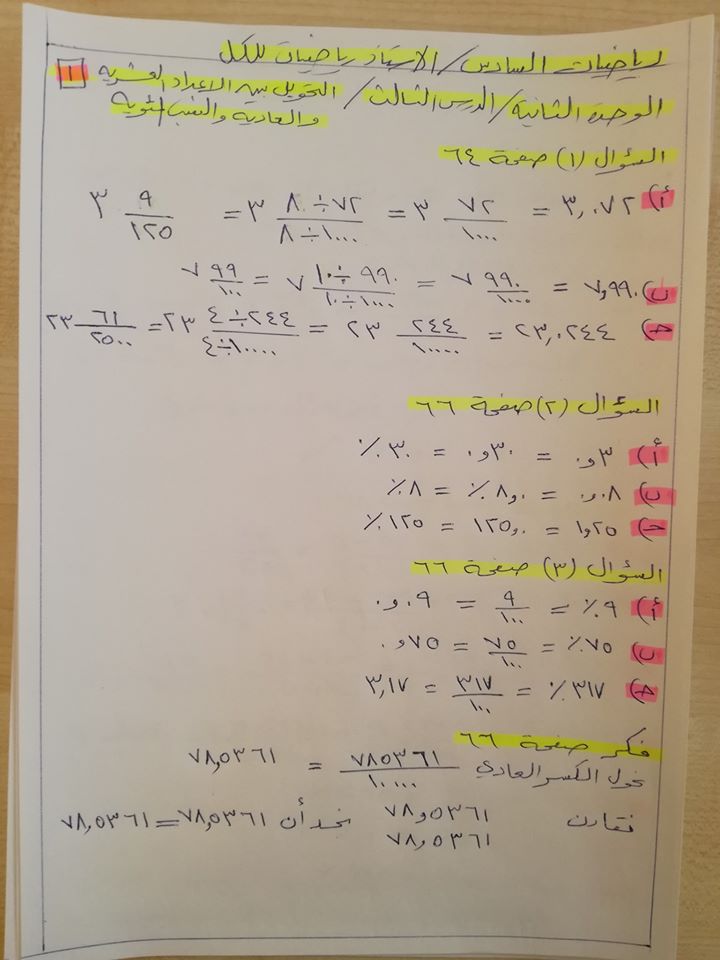 رياضيات السادس / الأستاذ رياضيات للكل
الوحدة الثانية / الدرس الثالث / التحويل بين الأعداد العشرية ١
والعادية والنسب المئوية
السؤال (١) صفحة ٦٤
أ) ٣,٠٧٢ = ٣ ٧٢/١٠٠٠ = ٣ ٧٢÷٨/١٠٠٠÷٨ = ٣ ٩/١٢٥
ب) ٧,٩٩٠ = ٧ ٩٩٠/١٠٠٠ = ٧ ٩٩٠÷١٠/١٠٠٠÷١٠ = ٧ ٩٩/١٠٠
جـ) ٢٣,٠٢٤٤ = ٢٣ ٢٤٤/١٠٠٠٠ = ٢٣ ٢٤٤÷٤/١٠٠٠٠÷٤ = ٢٣ ٦١/٢٥٠٠
السؤال (٢) صفحة ٦٦
أ) ٠,٣ = ٠,٣٠ = ٣٠٪
ب) ٠,٠٨ = ٨,٠٪ = ٨٪
جـ) ١,٢٥ = ١٢٥,٠ = ١٢٥٪
السؤال (٣) صفحة ٦٦
أ) ٩٪ = ٩/١٠٠ = ٠,٠٩
ب) ٧٥٪ = ٧٥/١٠٠ = ٠,٧٥
جـ) ٣١٧٪ = ٣١٧/١٠٠ = ٣,١٧
فكر صفحة ٦٦
نحول الكسر العادي ٧٨٥٣٦١/١٠٠٠٠ = ٧٨,٥٣٦١
نقارن ٧٨,٥٣٦١ نجد أن ٧٨,٥٣٦١ = ٧٨,٥٣٦١
٧٨,٥٣٦١